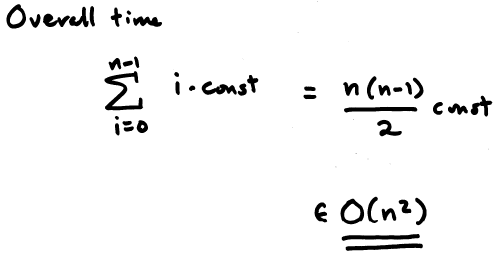 Overall time
n-1
∑ i · const = n(n-1)/2 const
i=0
∈ O(n²)